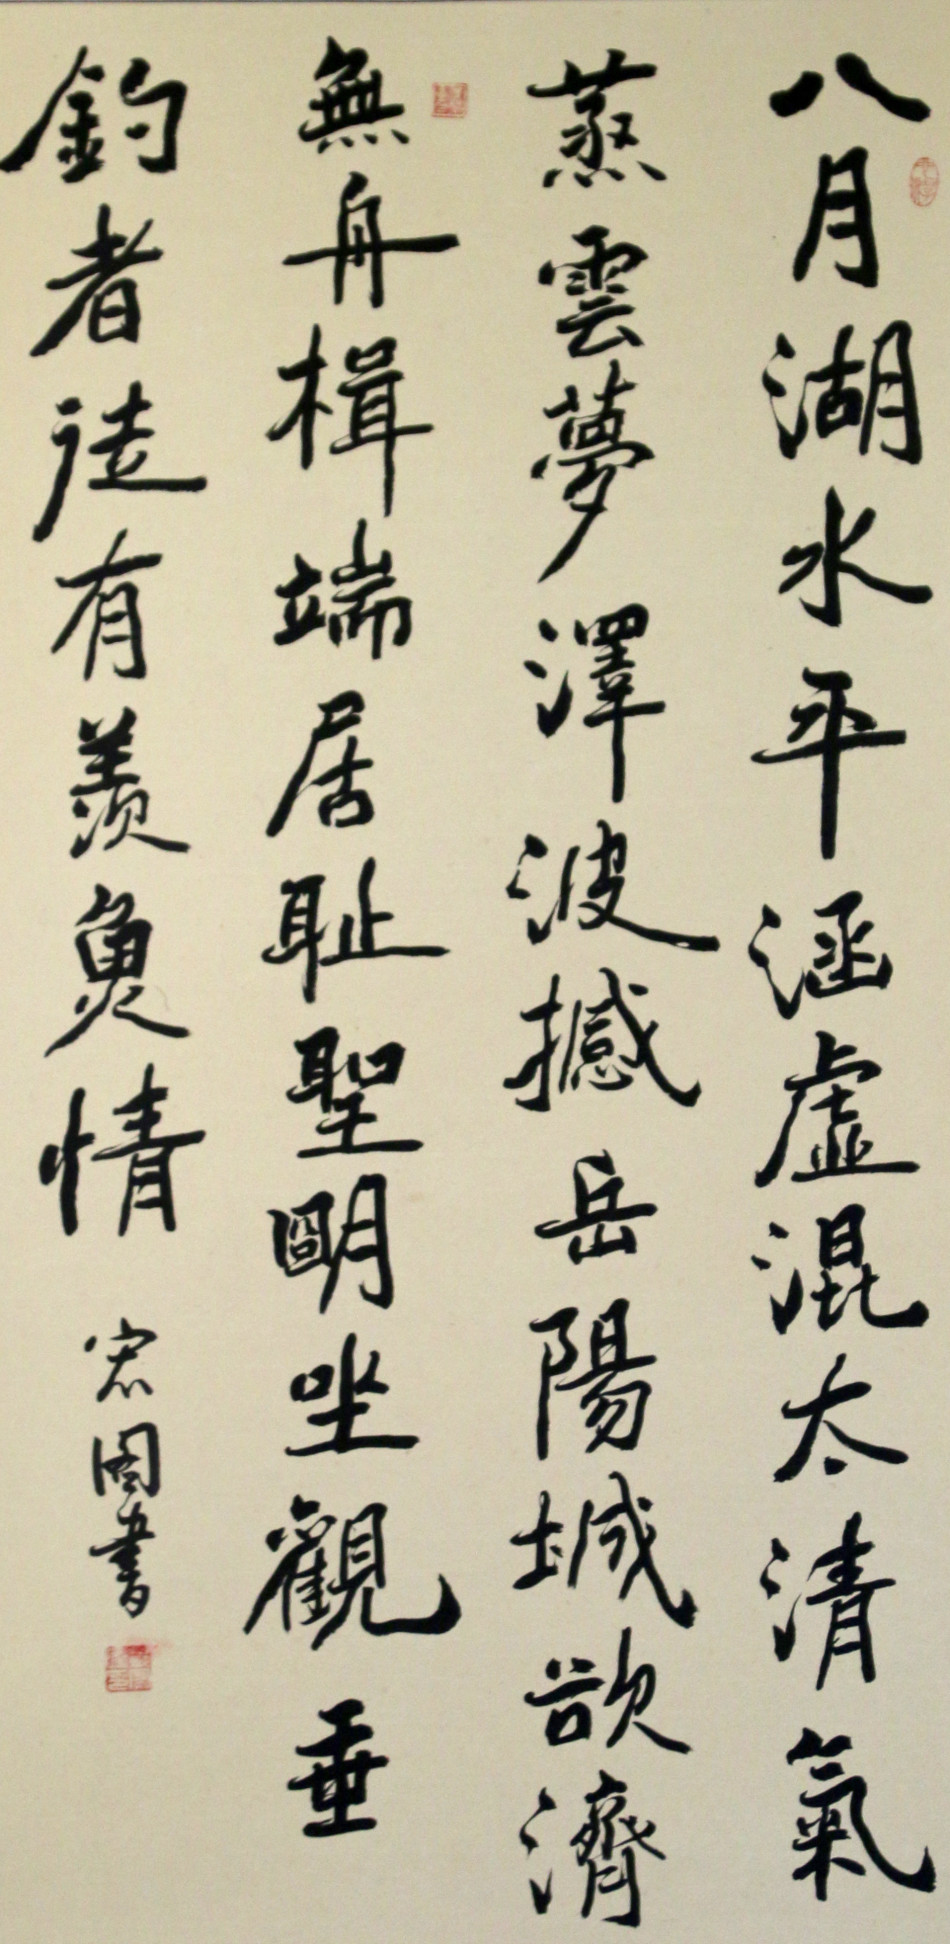 八月湖水平涵虛混太清氣
蒸雲夢澤波撼岳陽城欲濟
無舟楫端居耻聖明坐觀垂
釣者徒有羨魚情
宏图書